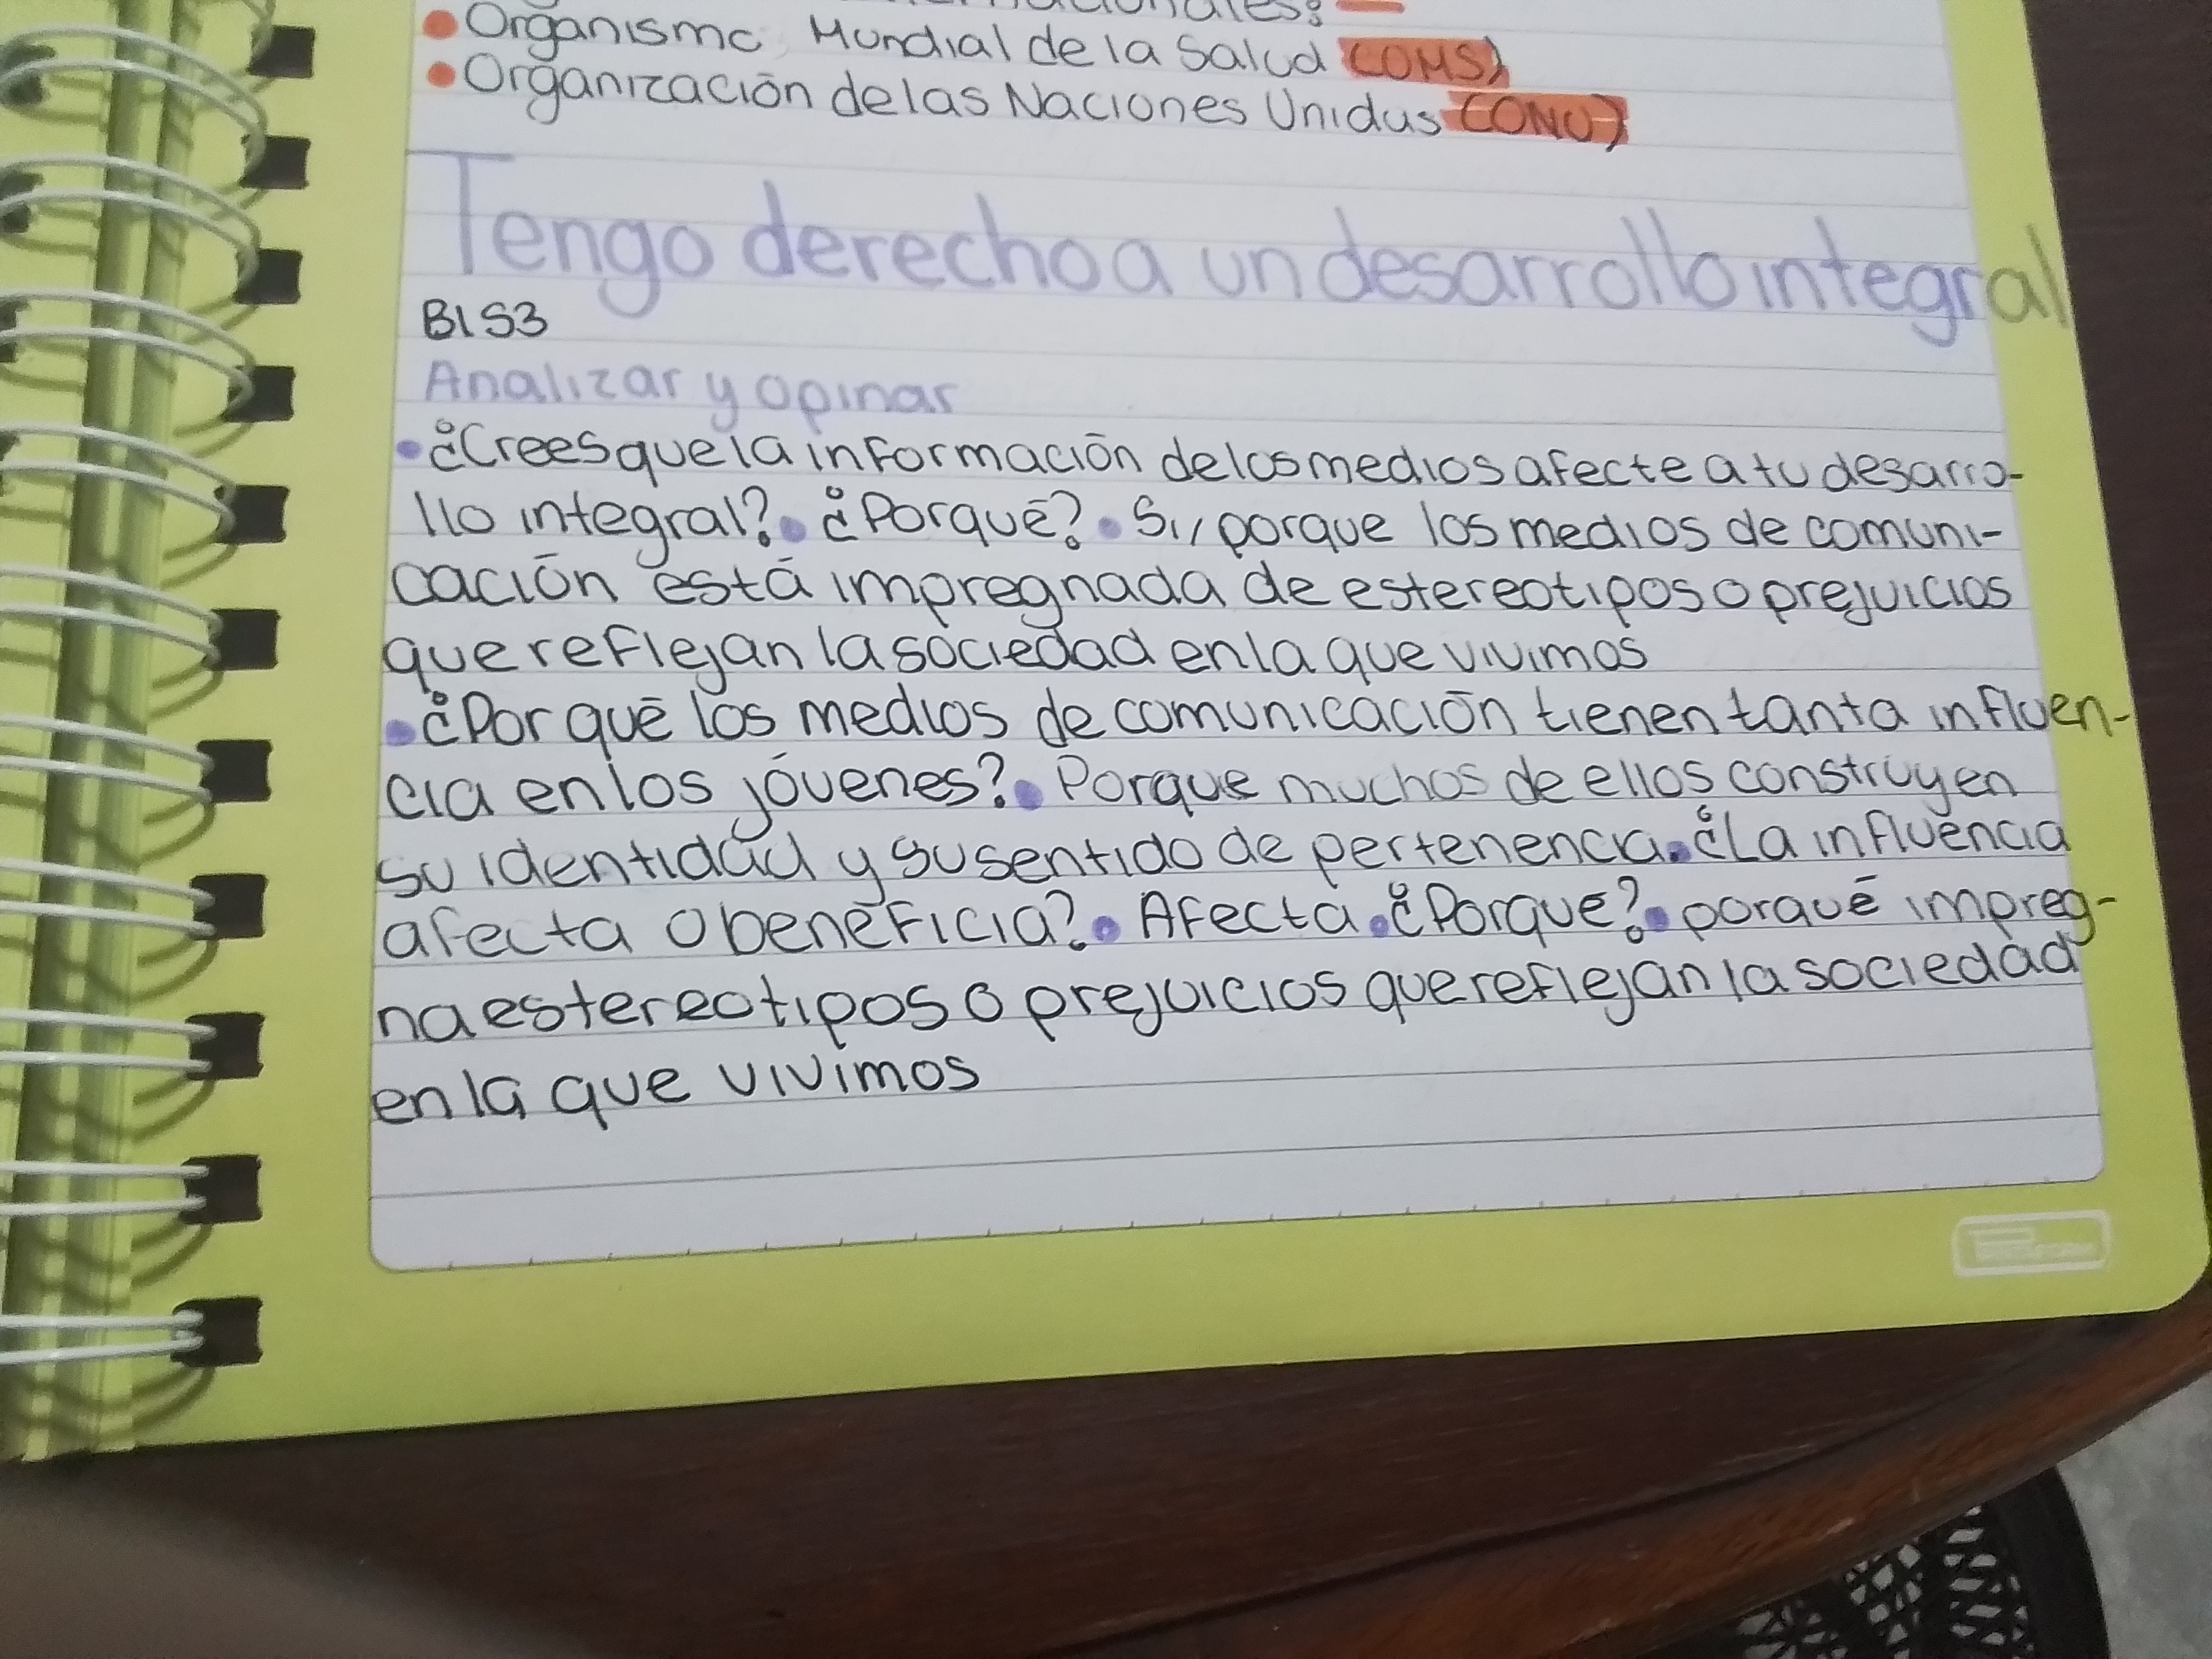 • Organismo Mundial de la Salud (OMS)
• Organización de las Naciones Unidas (ONU)
Tengo derecho a un desarrollo integral
B1S3
Analizar y opinar
• ¿Crees que la información de los medios afecte a tu desarro-
llo integral? • ¿Porqué? • Si, porque los medios de comuni-
cación está impregnada de estereotipos o prejuicios
que reflejan la sociedad en la que vivimos
• ¿Por qué los medios de comunicación tienen tanta influen-
cia en los jóvenes? • Porque muchos de ellos construyen
su identidad y su sentido de pertenencia. • ¿La influencia
afecta o beneficia? • Afecta • ¿Porque? • porqué impreg-
na estereotipos o prejuicios que reflejan la sociedad
en la que vivimos